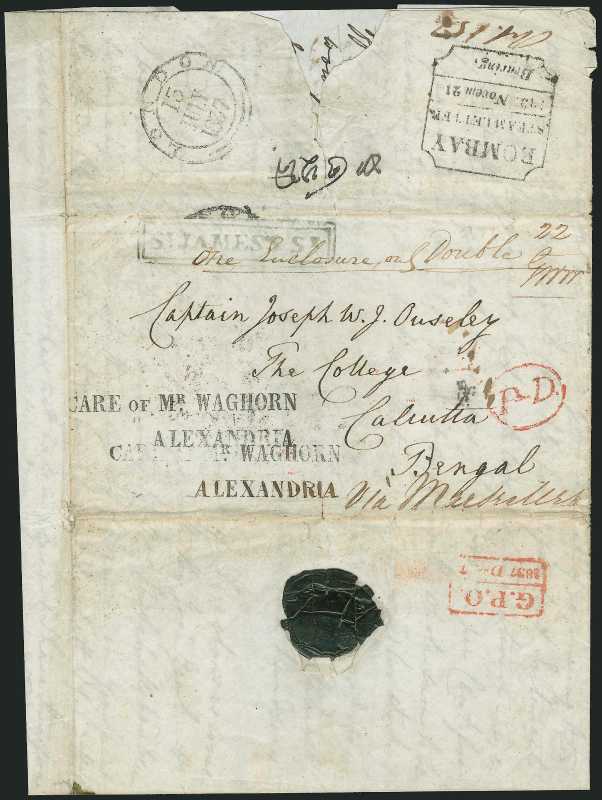 LONDON
15
JUY
1837
BOMBAY
STEAM LETTER
Novem 21
Bearing.
ST JAMES'S ST
One Enclosure, only Double
22
Captain Joseph W. J. Ouseley
The College
Calcutta
Bengal
Via Marseilles
P.D.
CARE OF MR WAGHORN
ALEXANDRIA
CARE OF MR WAGHORN
ALEXANDRIA
G.P.O.
1837 Dec 7